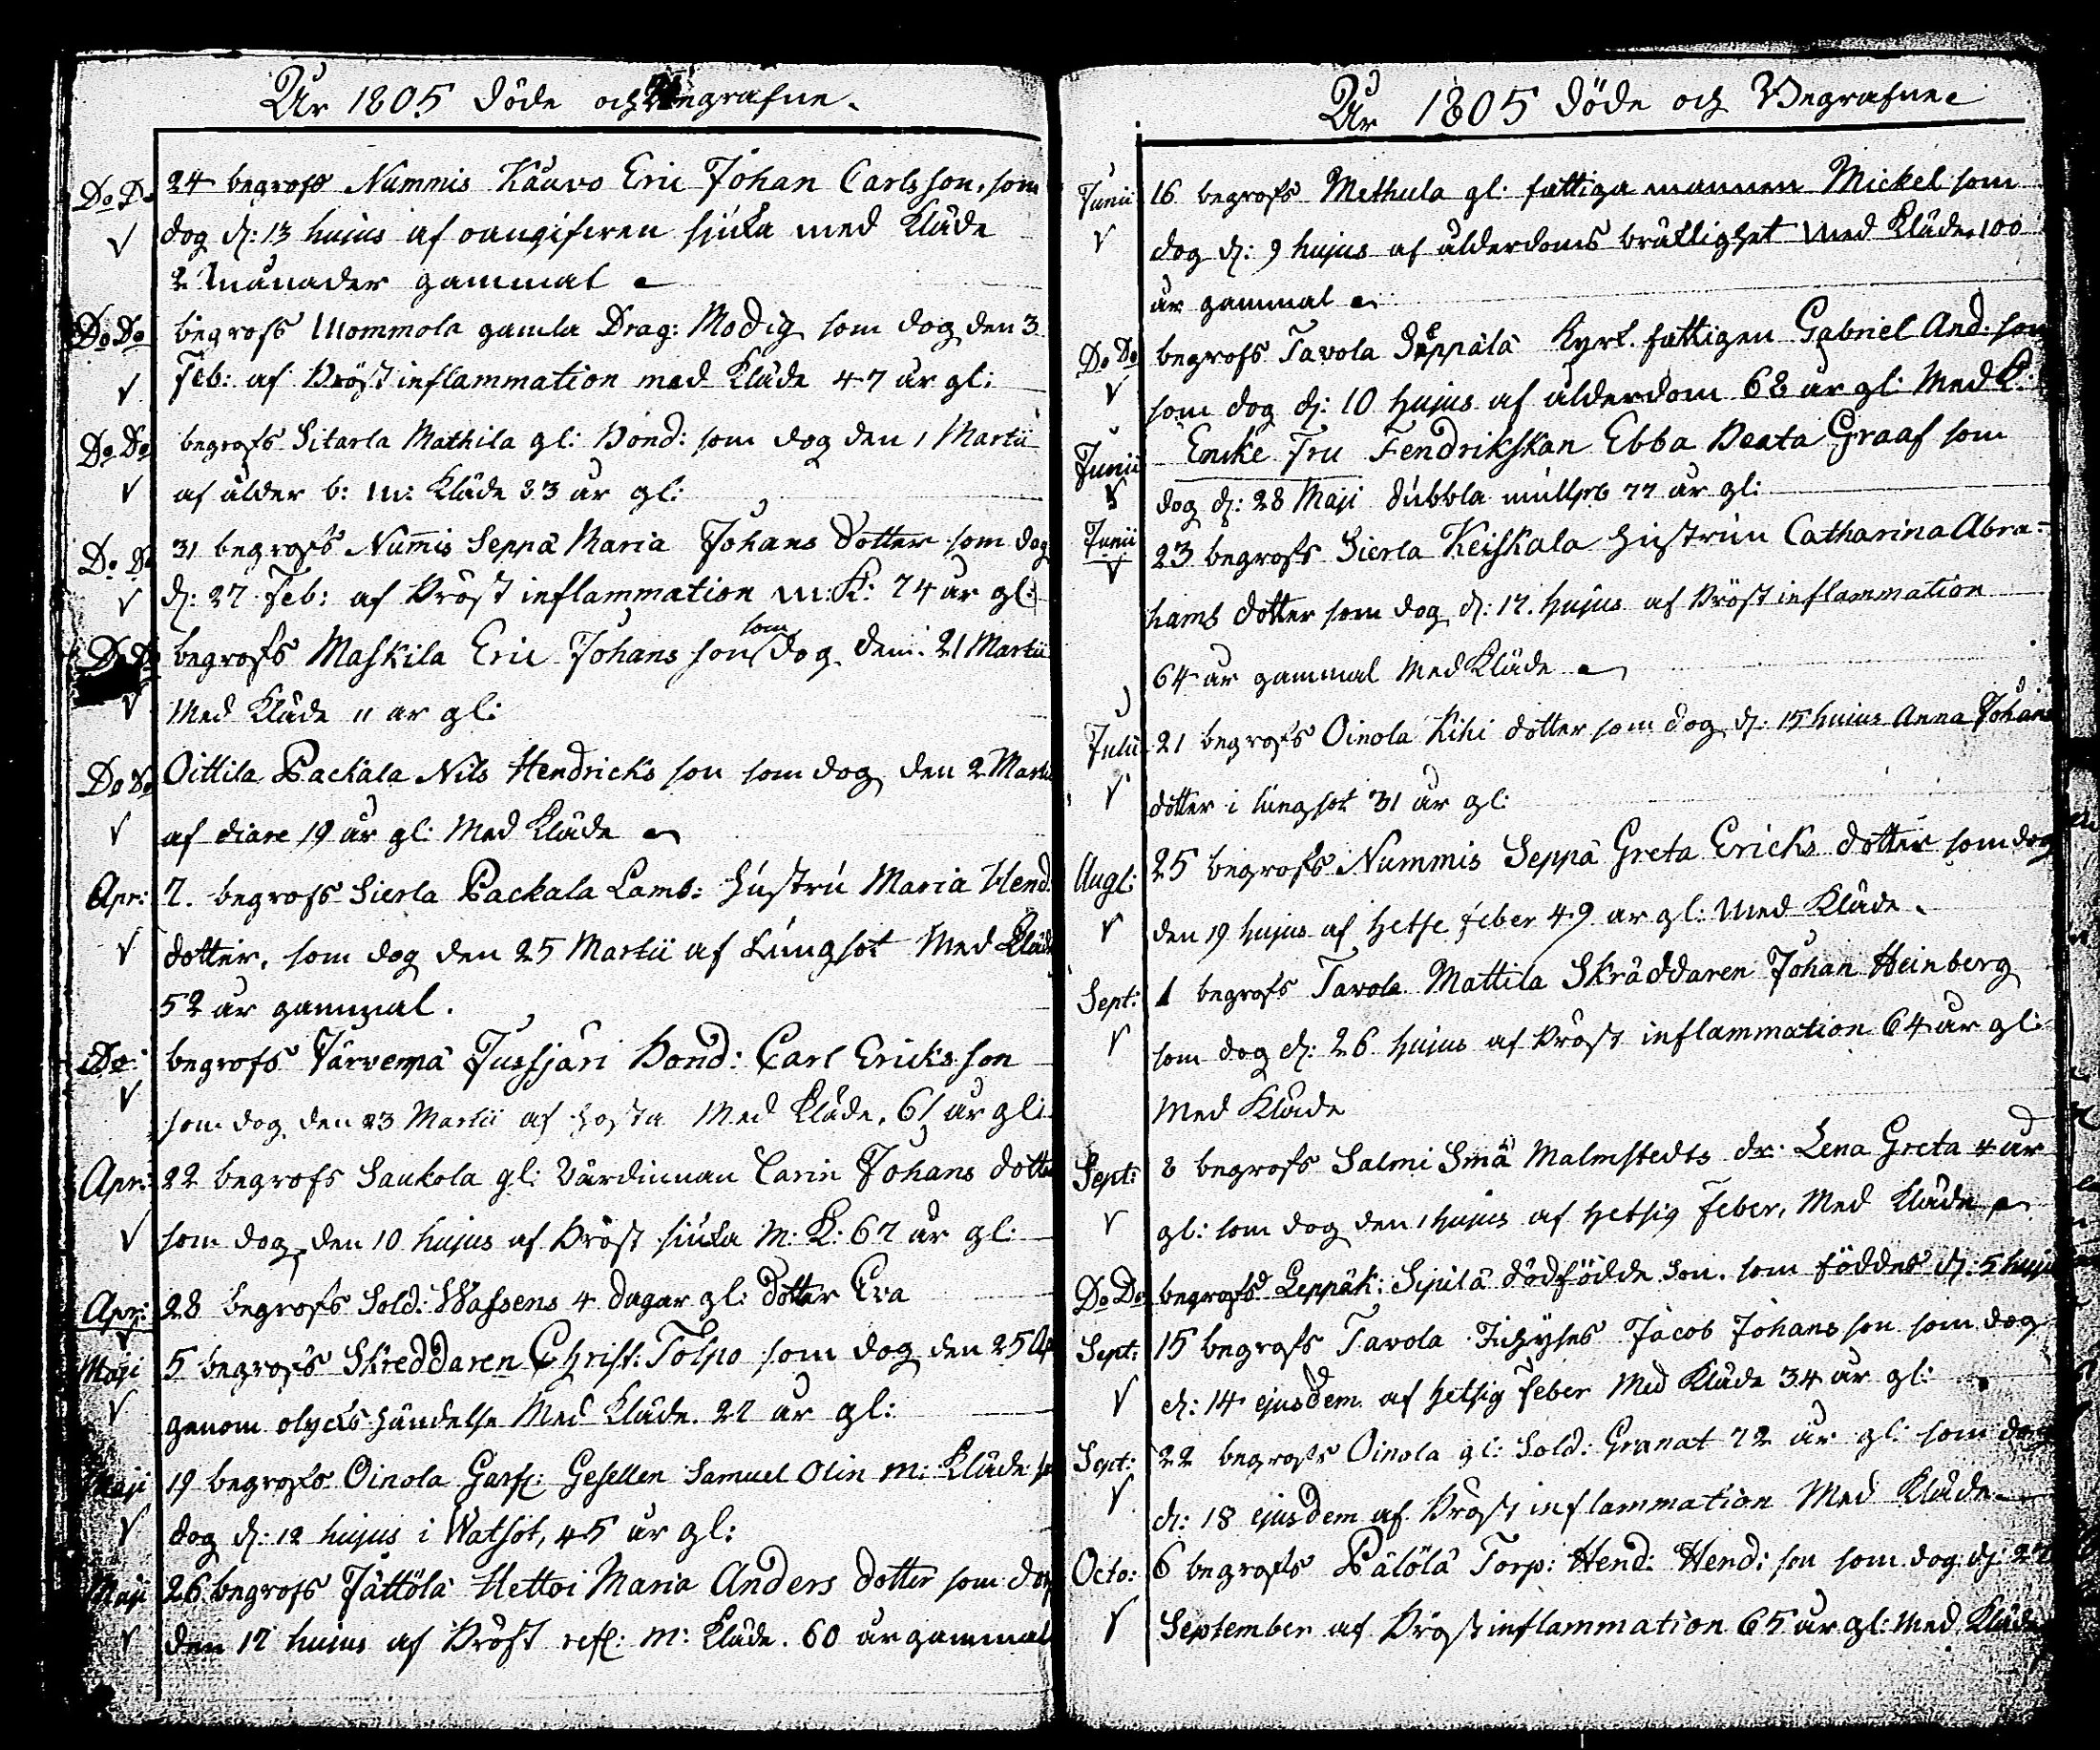 År 1805 döde och Begrafne.
Do Do 24 begrofs Nummis Kauvo Eric Johan Carlsson, som
dog d: 13 hujus af oangifven sjuka med Kläde
2 Månader gammal
Do Do begrofs Mommola gamla Drag: Modig som dog den 3
Feb: af Bröst inflammation med Kläde 47 år gl:
Do Do begrofs Sitarla Mathila gl: Bond: som dog den 1 Martii
af ålder b: m: Kläde 83 år gl:
Do Do 31 begrofs Num̄is Seppä Maria Johans dotter som dog
d: 27 Feb: af Bröst inflammation m: K: 74 år gl:
Do Do begrofs Maskila Eric Johans son som dog den 21 Martii
Med Kläde 11 år gl:
Do Do Oittila Packala Nils Hendricks son som dog den 2 Martii
af diare 19 år gl: Med Kläde
Apr: 7. begrofs Sierla Packala Lamb: hustru Maria Hend:
dotter, som dog den 25 Martii af Lungsot Med Kläde
52 år gammal.
Do: begrofs Järvempä Jussjari Bond: Carl Ericks son
som dog den 23 Martii af hosta Med Kläde, 61 år gl:
Apr: 22 begrofs Saukola gl: Värdinnan Carin Johans dotter
som dog den 10 hujus af Bröst sjuka M: K: 67 år gl:
Apr: 28 begrofs Sold: Wassens 4 dagar gl: dotter Eva
Maji 5 begrofs Skreddaren Christ: Tolpo som dog den 25 Ap
genom olycks händelse Med Kläde. 27 år gl:
Maji 19 begrofs Oinola Garf: Gesellen Samuel Olin m: Kläde
dog d: 12 hujus i Watsot, 45 år gl:
Maji 26 begrofs Jättölä Hettoi Maria Anders dotter som dog
den 17 hujus af Bröst m: Kläde. 60 år gammal
År 1805 döde och Begrafne
Junii 16 begrofs Methula gl: fattiga mannen Mickel som
dog d: 9 hujus af ålderdoms bräklighet Med Kläde 100
år gammal
Do Do begrofs Tavola Seppälä Kyrk. fattigen Gabriel And: son
som dog d: 10 hujus af ålderdom 68 år gl: Med K:
Junii Encke Fru Fendrikskan Ebba Beata Graaf som
dog d: 28 Maji dubbla 77 år gl:
Junii 23 begrofs Sierla Keiskala hustrun Catharina Abra-
hams dotter som dog d: 17. hujus af Bröst inflammation
64 år gammal Med Kläde
Julii 21 begrofs Oinola Kihi dotter som dog d: 15 hujus Anna Johans
dotter i lungsot 31 år gl:
Augl: 25 begrofs Nummis Seppä Greta Ericks dotter som dog
den 19 hujus af Hetse feber 49 år gl: Med Kläde.
Sept: 1 begrofs Tavola Mattila Skräddaren Johan Heinberg
som dog d: 26 hujus af Bröst inflammation 64 år gl:
Med Kläde
Sept: 8 begrofs Salmi Smä Malmstedts dr: Lena Greta 4 år
gl: som dog den 1 hujus af Hetsig Feber, Med Kläde
Do Do begrofs Leppäk: Sipilä dödfödde Son. som föddes d: 5 huju
Sept: 15 begrofs Tavola Jacob Johans son som dog
d: 14 ejusdem af Hetsig Feber Med Kläde 34 år gl:
Sept: 22 begrofs Oinola gl: Sold: Granat 72 år gl: som dog
d: 18 ejusdem af Bröst inflammation Med Kläde
Octo: 6 begrofs Pälölä Torp: Hend: Hend: son som dog d: 27
September af Bröst inflammation 65 år gl: Med Kläde